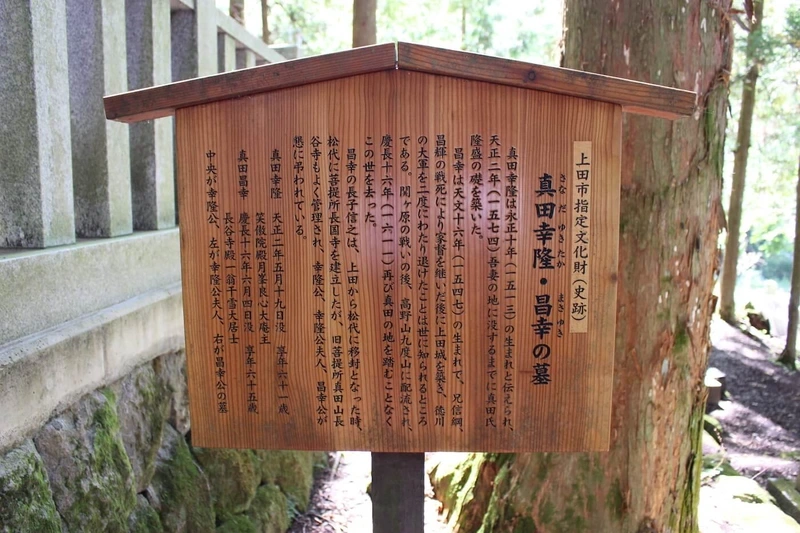 上田市指定文化財（史跡）
真田幸隆・昌幸の墓
さなだ ゆきたか まさゆき
真田幸隆は永正十年（一五一三）の生まれと伝えられ、
天正二年（一五七四）吾妻の地に没するまでに真田氏
隆盛の礎を築いた。
昌幸は天文十六年（一五四七）の生まれで、兄信綱、
昌輝の戦死により家督を継いだ後に上田城を築き、徳川
の大軍を二度にわたり退けたことは世に知られるところ
である。関ヶ原の戦いの後、高野山九度山に配流され、
慶長十六年（一六一一）再び真田の地を踏むことなく
この世を去った。
昌幸の長子信之は、上田から松代に移封となった時、
松代に菩提所長国寺を建立したが、旧菩提所真田山長
谷寺もよく管理され、幸隆公、幸隆公夫人、昌幸公が
懇に弔われている。
真田幸隆 天正二年五月十九日没 享年六十一歳
笑傲院殿月峯良心大庵主
真田昌幸 慶長十六年六月四日没 享年六十五歳
長谷寺殿一翁千雪大居士
中央が幸隆公、左が幸隆公夫人、右が昌幸公の墓